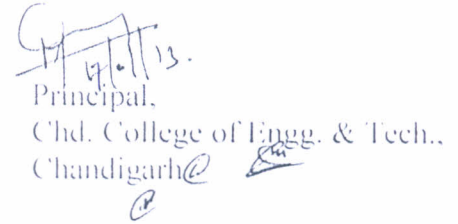 Principal,
Chd. College of Engg. & Tech.,
Chandigarh